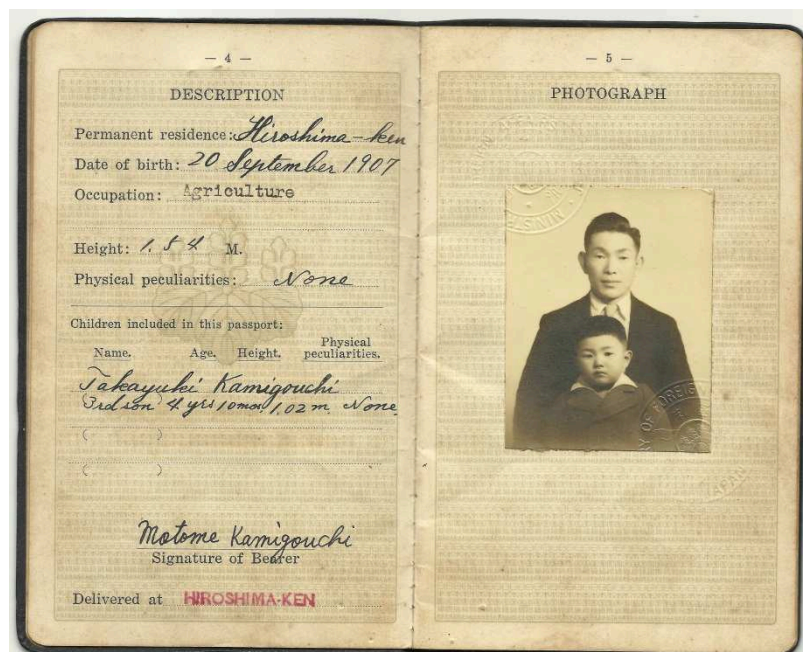 — 4 —
DESCRIPTION
Permanent residence: Hiroshima-ken
Date of birth: 20 September 1907
Occupation: Agriculture
Height: 1.54 M.
Physical peculiarities: None
Children included in this passport:
Name. Age. Height. Physical peculiarities.
Takayuki Kamigouchi
(3rd son) 4 yrs 10 mos 1,02 m. None
( )
( )
Motome Kamigouchi
Signature of Bearer
Delivered at HIROSHIMA-KEN
— 5 —
PHOTOGRAPH
MINIST
Y OF FOREIGN
JAPAN